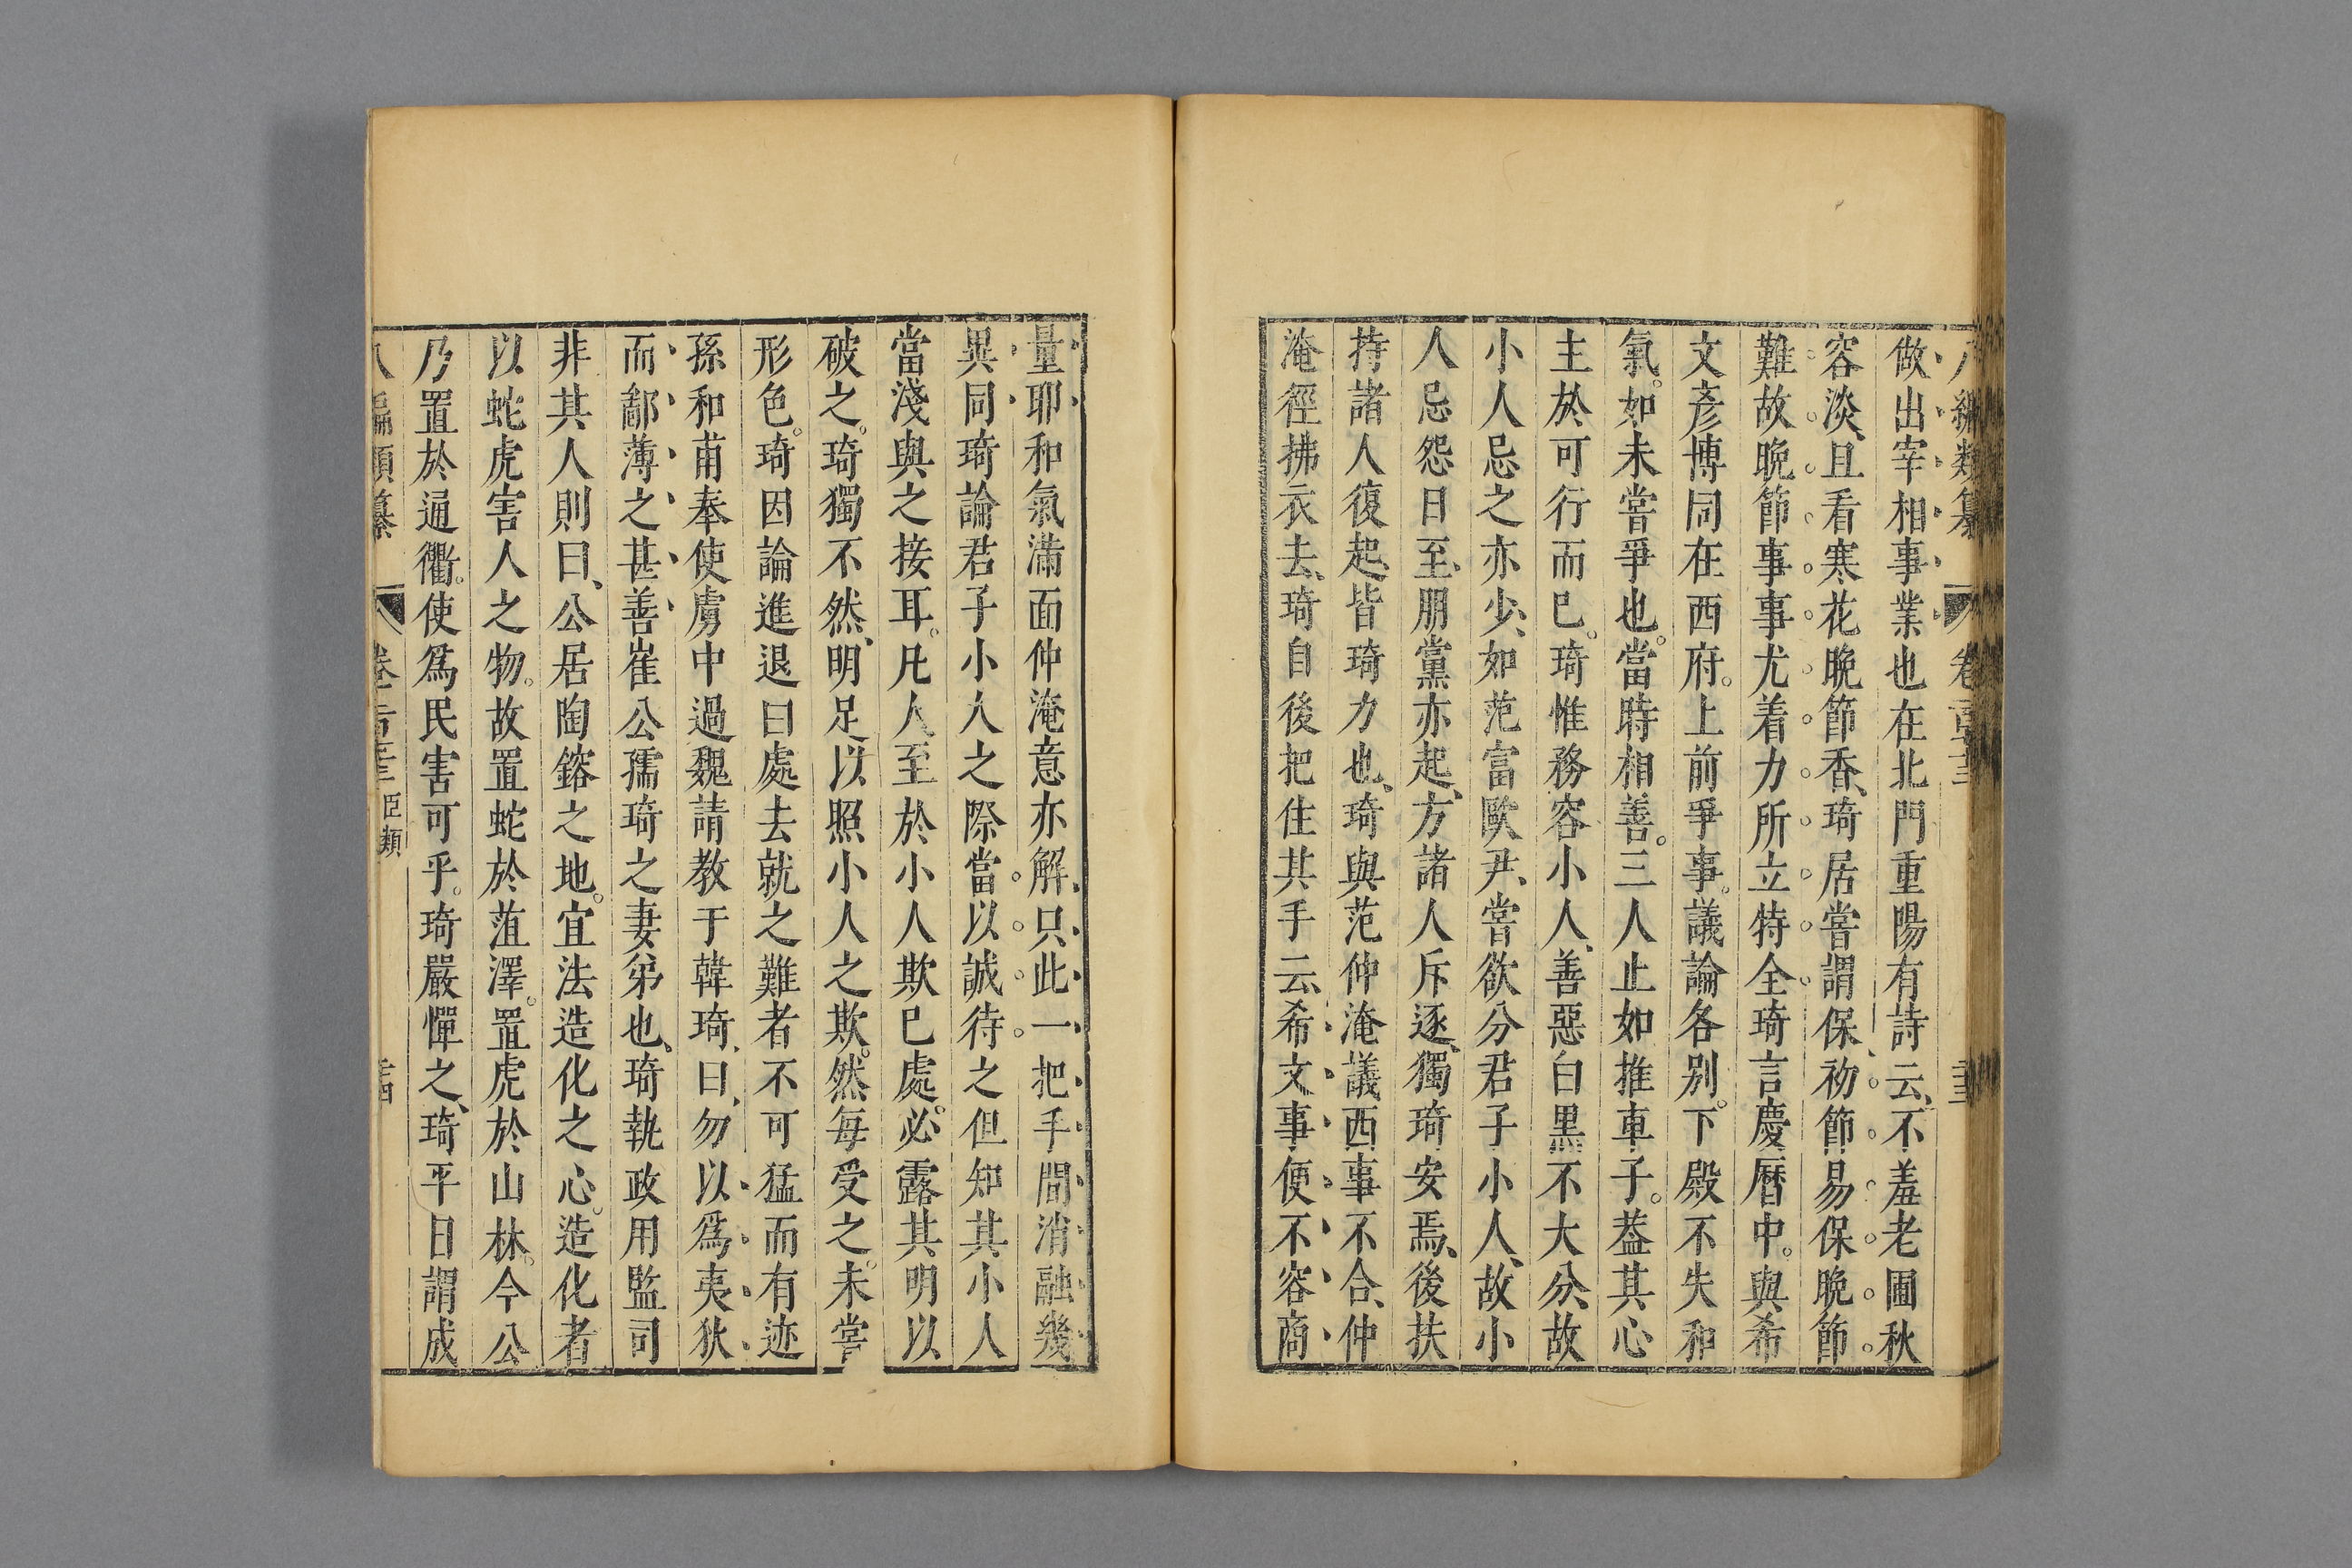 八編類纂 卷一百
做出宰相事業也在北門重陽有詩云、不羞老圃秋
容淡、且看寒花晚節香、琦居嘗謂保初節易保晚節
難故晚節事事尤着力所立特全琦言慶曆中。與希
文彥博同在西府。上前爭事。議論各別。下殿不失和
氣。如未嘗爭也。當時相善。三人止如推車子。葢其心
主於可行而已。琦惟務容小人、善惡白黑不大分、故
小人忌之亦少、如范富歐尹、嘗欲分君子小人、故小
人忌怨日至、朋黨亦起、方諸人斥逐、獨琦安焉、後扶
持諸人復起、皆琦力也、琦與范仲淹議西事不合、仲
淹徑拂衣去、琦自後把住其手云、希文事便不容商
量耶和氣滿面仲淹意亦解、只此一把手間消融幾
異同琦論君子小人之際當以誠待之但知其小人
當淺與之接耳。凡人至於小人欺已處。必露其明以
破之。琦獨不然、明足以照小人之欺。然每受之。未嘗
形色。琦因論進退曰處去就之難者不可猛而有迹
孫和甫奉使虜中過魏請教于韓琦、曰、勿以爲夷狄
而鄙薄之甚善崔公孺琦之妻弟也、琦執政用監司
非其人則曰、公居陶鎔之地。宜法造化之心。造化者
以蛇虎害人之物。故置蛇於菹澤。置虎於山林。今公
乃置於通衢。使爲民害可乎。琦嚴憚之、琦平日謂成
八編類纂 卷一百 臣類